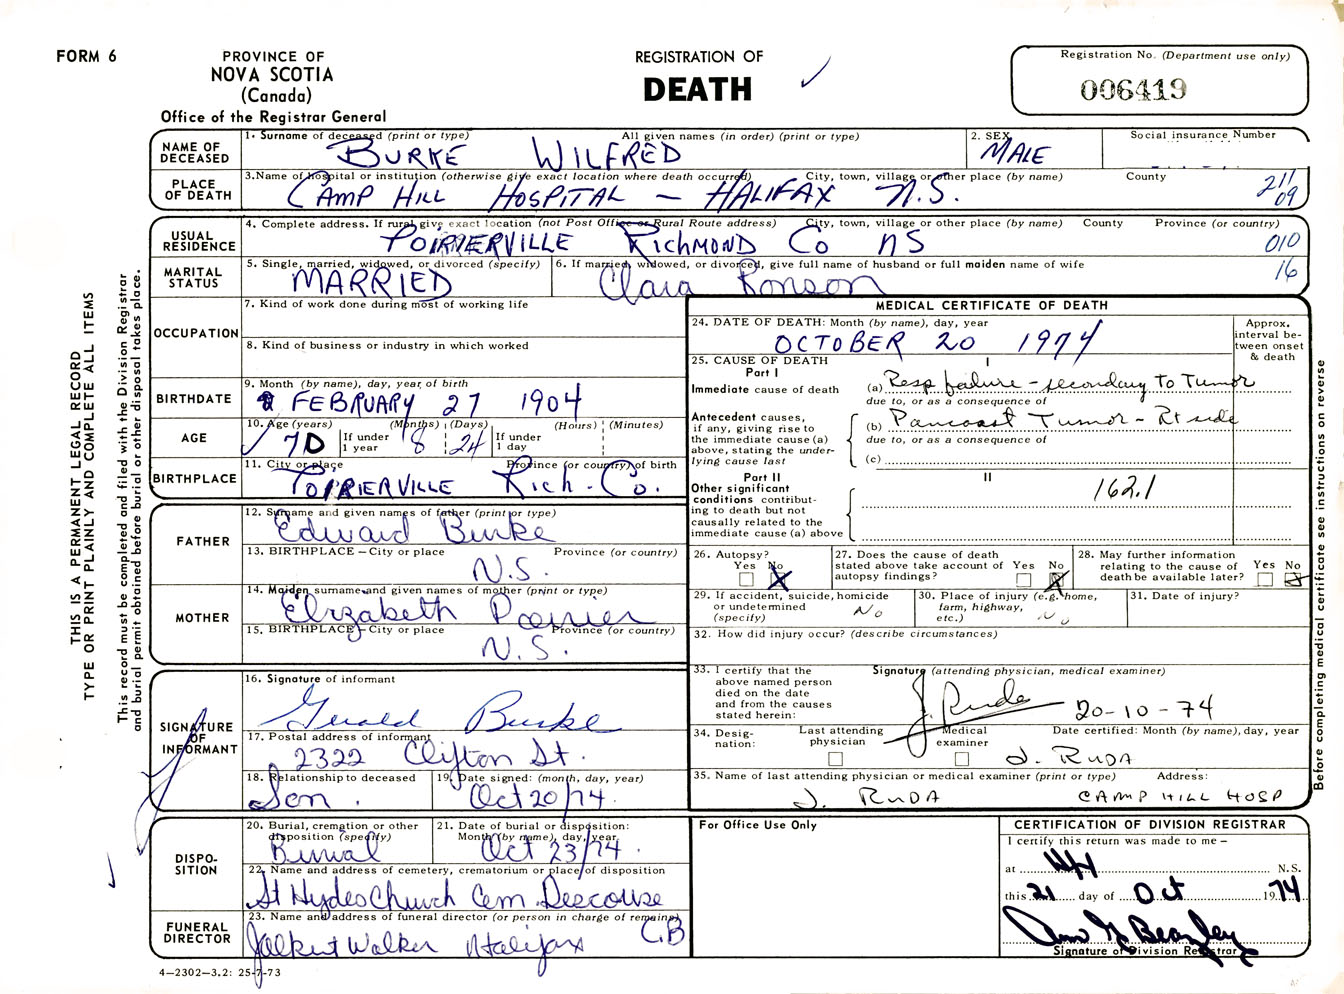 FORM 6
PROVINCE OF
NOVA SCOTIA
(Canada)
Office of the Registrar General
REGISTRATION OF
DEATH
Registration No. (Department use only)
006419
THIS IS A PERMANENT LEGAL RECORD
TYPE OR PRINT PLAINLY AND COMPLETE ALL ITEMS
This record must be completed and filed with the Division Registrar
and burial permit obtained before burial or other disposal takes place.
Before completing medical certificate see instructions on reverse
NAME OF DECEASED
1. Surname of deceased (print or type) All given names (in order) (print or type)
BURKE WILFRED
2. SEX
MALE
Social insurance Number
PLACE OF DEATH
3. Name of hospital or institution (otherwise give exact location where death occurred) City, town, village or other place (by name) County
CAMP HILL HOSPITAL — HALIFAX N.S.
211
09
USUAL RESIDENCE
4. Complete address. If rural give exact location (not Post Office or Rural Route address) City, town, village or other place (by name) County Province (or country)
POIRIERVILLE RICHMOND Co NS
010
16
MARITAL STATUS
5. Single, married, widowed, or divorced (specify)
MARRIED
6. If married, widowed, or divorced, give full name of husband or full maiden name of wife
Clara Ronson
OCCUPATION
7. Kind of work done during most of working life
8. Kind of business or industry in which worked
BIRTHDATE
9. Month (by name), day, year, of birth
FEBRUARY 27 1904
AGE
10. Age (years) If under 1 year (Months) (Days) If under 1 day (Hours) (Minutes)
70 8 24
BIRTHPLACE
11. City or place Province (or country) of birth
POIRIERVILLE Rich. Co.
FATHER
12. Surname and given names of father (print or type)
Edward Burke
13. BIRTHPLACE – City or place Province (or country)
N.S.
MOTHER
14. Maiden surname and given names of mother (print or type)
Elizabeth Poirier
15. BIRTHPLACE – City or place Province (or country)
N.S.
SIGNATURE OF INFORMANT
16. Signature of informant
Gerald Burke
17. Postal address of informant
2322 Clifton St.
18. Relationship to deceased
Son.
19. Date signed: (month, day, year)
Oct 20/74
DISPOSITION
20. Burial, cremation or other disposition (specify)
Burial
21. Date of burial or disposition: Month (by name), day, year
Oct 23/74.
22. Name and address of cemetery, crematorium or place of disposition
St Hydes Church Cem. Descouse
C.B
FUNERAL DIRECTOR
23. Name and address of funeral director (or person in charge of remains)
Walker Halifax
4—2302—3.2: 25-7-73
MEDICAL CERTIFICATE OF DEATH
24. DATE OF DEATH: Month (by name), day, year
OCTOBER 20 1974
Approx. interval between onset & death
25. CAUSE OF DEATH
Part I
I
Immediate cause of death
(a) Resp failure - secondary to Tumor
due to, or as a consequence of
Antecedent causes, if any, giving rise to the immediate cause (a) above, stating the underlying cause last
(b) Pancoast Tumor - Rt side
due to, or as a consequence of
(c)
Part II
II
Other significant conditions contributing to death but not causally related to the immediate cause (a) above
162.1
26. Autopsy? Yes No
27. Does the cause of death stated above take account of autopsy findings? Yes No
28. May further information relating to the cause of death be available later? Yes No
29. If accident, suicide, homicide or undetermined (specify)
No
30. Place of injury (e.g. home, farm, highway, etc.)
No
31. Date of injury?
32. How did injury occur? (describe circumstances)
33. I certify that the above named person died on the date and from the causes stated herein:
Signature (attending physician, medical examiner)
J. Ruda 20-10-74
34. Designation: Last attending physician Medical examiner
Date certified: Month (by name), day, year
J. RUDA
35. Name of last attending physician or medical examiner (print or type) Address:
J. RUDA CAMP HILL HOSP
For Office Use Only
CERTIFICATION OF DIVISION REGISTRAR
I certify this return was made to me –
at N.S.
this 21 day of Oct 1974
Signature of Division Registrar